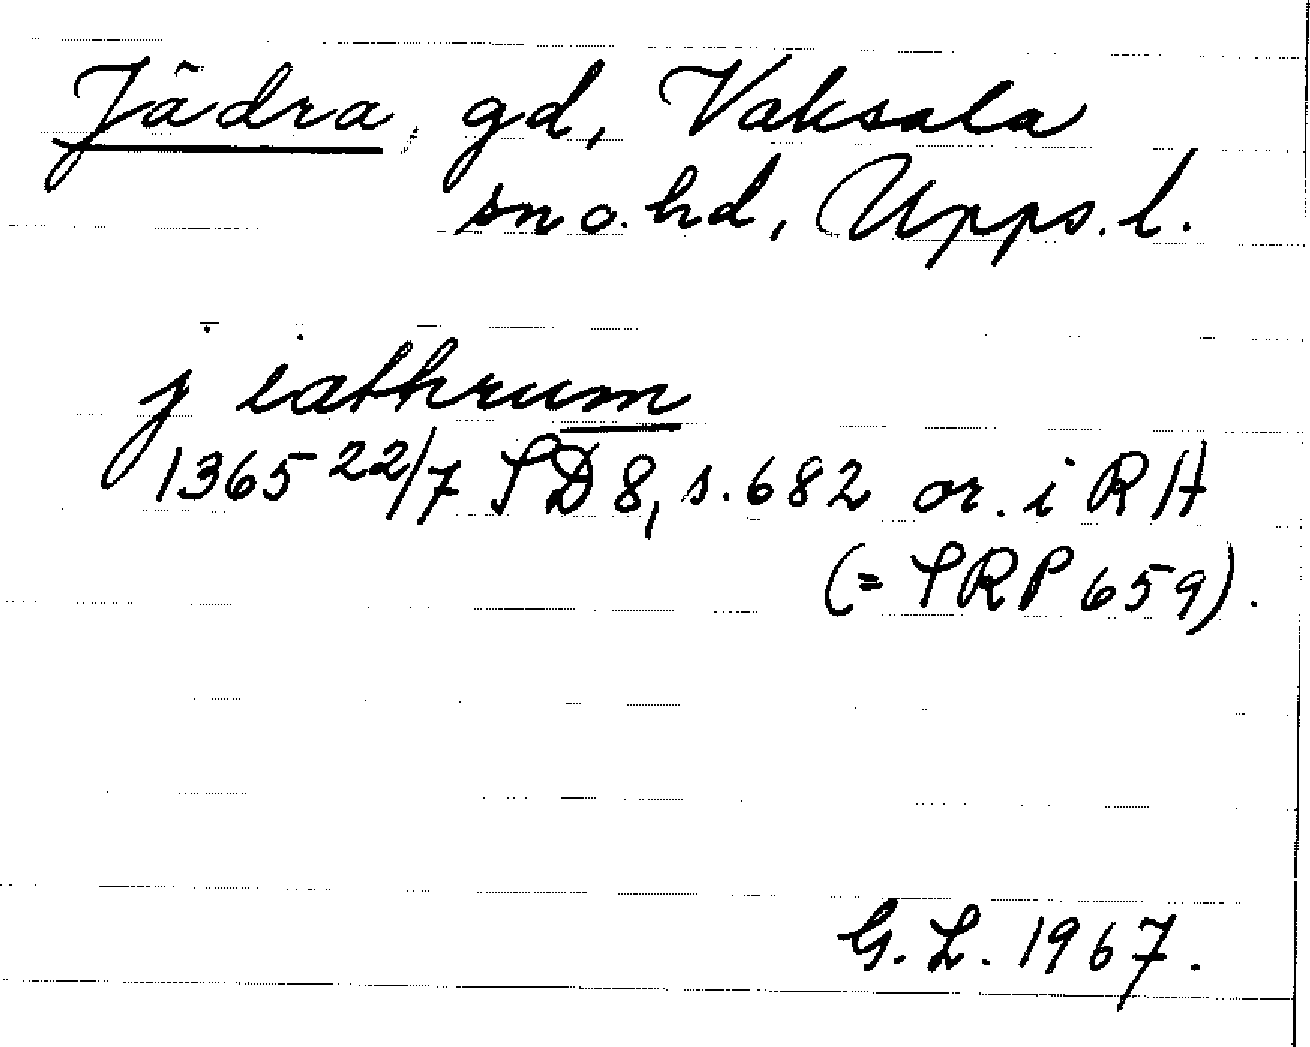 Jädra, gd, Vaksala
sn o. hd, Upps. l.
j iathrum
1365 22/7 SD 8, s. 682 or. i RH
(= SRP 659).
G. L. 1967.